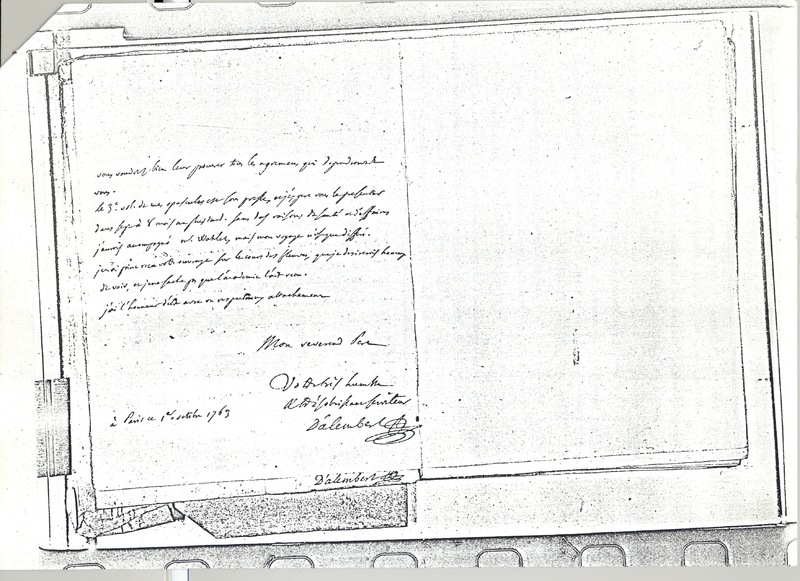 vous voudrez bien leur procurer tous les agremens qui dependront de
vous.
le 3e. vol. de mes opuscules est sous presse, et j'espere vous le presenter
dans sept à 8 mois au plus tard. sans des raisons de santé et d'affaires
j'aurois accompagné M. Watelet, mais mon voyage n'est que differé.
je n'ai point reçu votre ouvrage sur le cours des fleuves, que je desirerois beaucoup
de voir, et je ne sache pas que l'académie l'ait recu.
j'ai l'honneur d'etre avec un respectueux attachement
Mon reverend Pere
Votre tres humble
et tres obeissant serviteur
D'alembert
à Paris ce 1er. octobre 1763
D'alembert